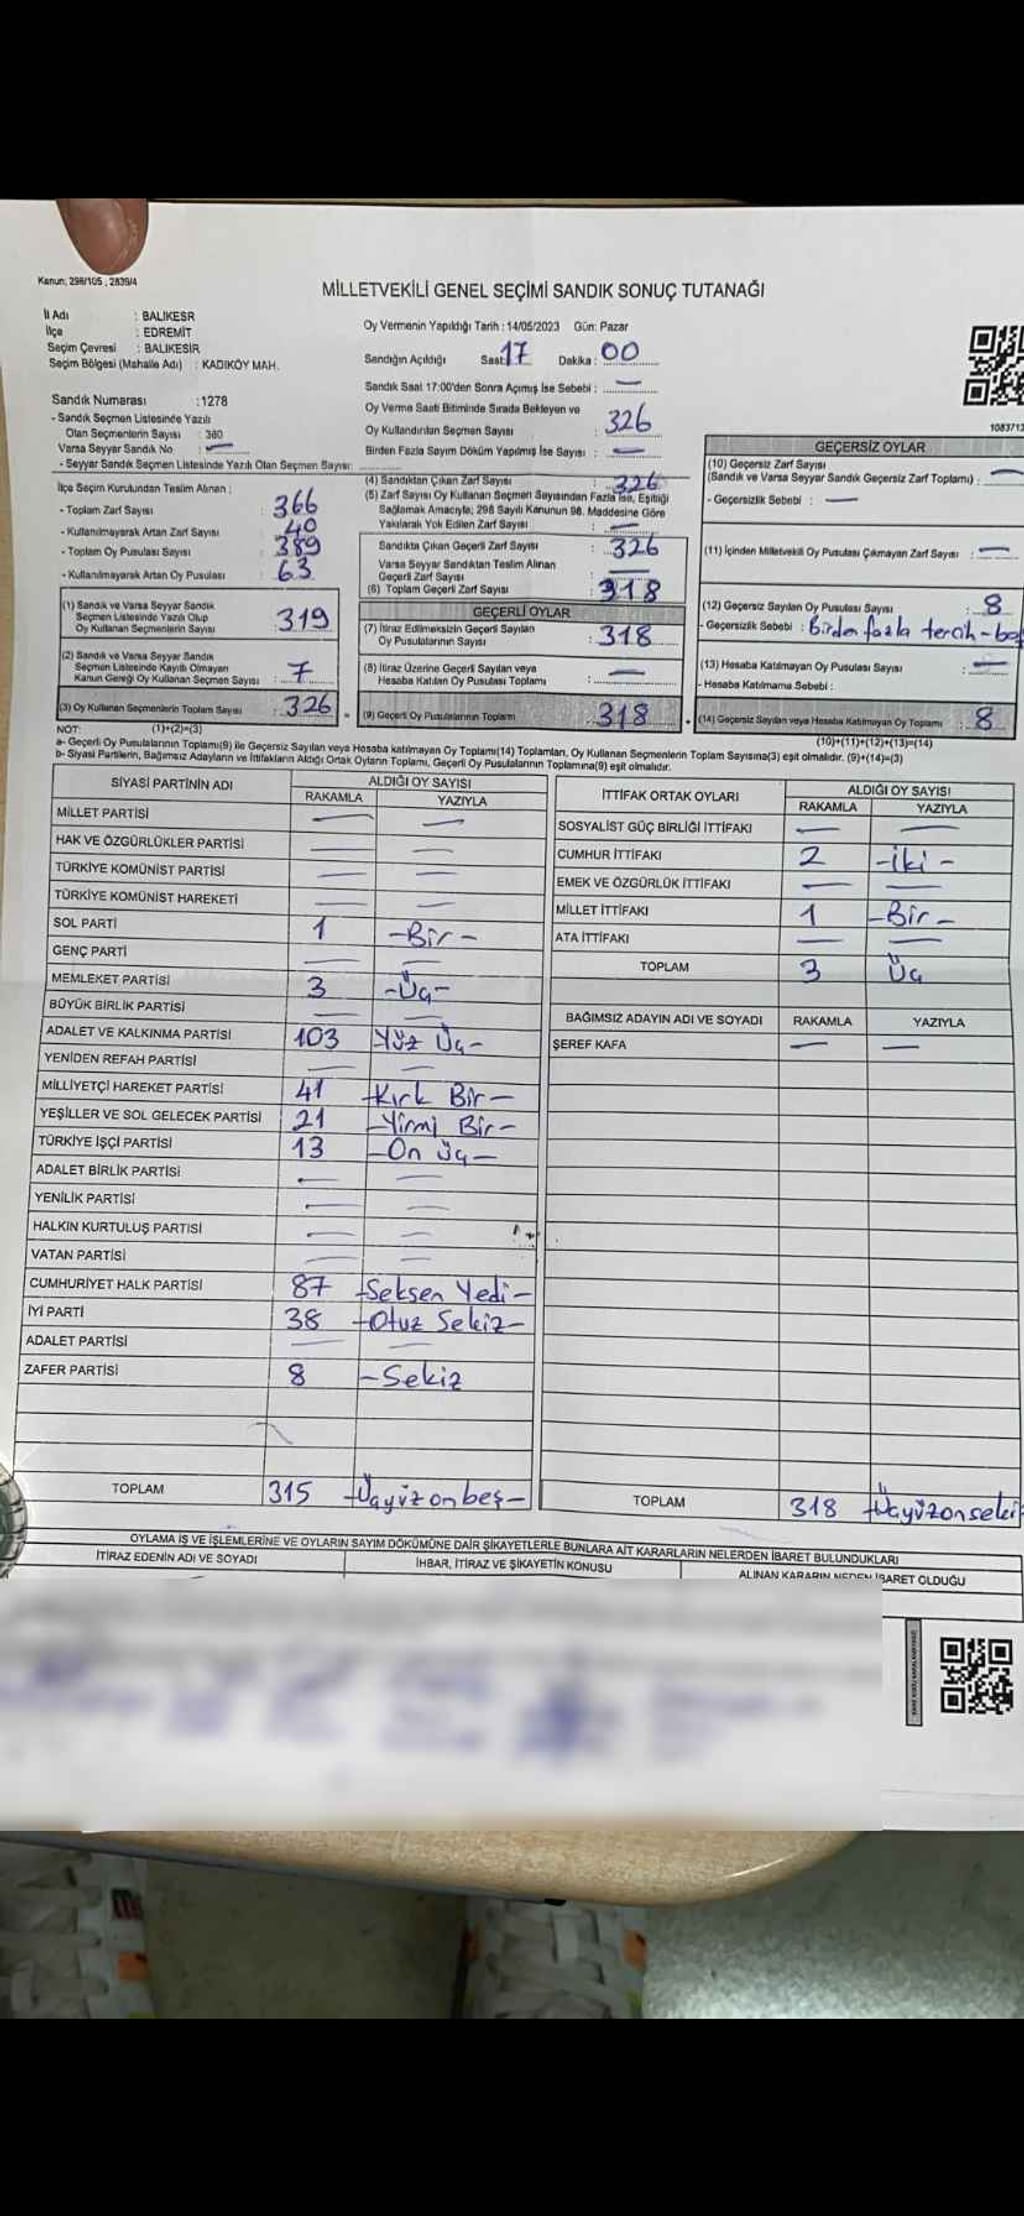 Kanun; 298/105 , 2839/4
MİLLETVEKİLİ GENEL SEÇİMİ SANDIK SONUÇ TUTANAĞI
İl Adı : BALIKESR
İlçe : EDREMİT
Seçim Çevresi : BALIKESİR
Seçim Bölgesi (Mahalle Adı) : KADIKÖY MAH.
Sandık Numarası :1278
- Sandık Seçmen Listesinde Yazılı
Olan Seçmenlerin Sayısı : 360
Varsa Seyyar Sandık No : —
- Seyyar Sandık Seçmen Listesinde Yazılı Olan Seçmen Sayısı:
İlçe Seçim Kurulundan Teslim Alınan :
- Toplam Zarf Sayısı : 366
- Kullanılmayarak Artan Zarf Sayısı : 40
- Toplam Oy Pusulası Sayısı : 389
- Kullanılmayarak Artan Oy Pusulası : 63
(1) Sandık ve Varsa Seyyar Sandık
Seçmen Listesinde Yazılı Olup
Oy Kullanan Seçmenlerin Sayısı : 319
(2) Sandık ve Varsa Seyyar Sandık
Seçmen Listesinde Kayıtlı Olmayan
Kanun Gereği Oy Kullanan Seçmen Sayısı : 7
(3) Oy Kullanan Seçmenlerin Toplam Sayısı : 326
(1)+(2)=(3)
Oy Vermenin Yapıldığı Tarih : 14/05/2023 Gün: Pazar
Sandığın Açıldığı Saat: 17 Dakika : 00
Sandık Saat 17:00'den Sonra Açımış İse Sebebi : —
Oy Verme Saati Bitiminde Sırada Bekleyen ve
Oy Kullandırılan Seçmen Sayısı : 326
Birden Fazla Sayım Döküm Yapılmış İse Sayısı : —
(4) Sandıktan Çıkan Zarf Sayısı : 326
(5) Zarf Sayısı Oy Kullanan Seçmen Sayısından Fazla İse, Eşitliği
Sağlamak Amacıyla; 298 Sayılı Kanunun 98. Maddesine Göre
Yakılarak Yok Edilen Zarf Sayısı : —
Sandıkta Çıkan Geçerli Zarf Sayısı : 326
Varsa Seyyar Sandıktan Teslim Alınan
Geçerli Zarf Sayısı —
(6) Toplam Geçerli Zarf Sayısı : 318
GEÇERLİ OYLAR
(7) İtiraz Edilmeksizin Geçerli Sayılan
Oy Pusulalarının Sayısı : 318
(8) İtiraz Üzerine Geçerli Sayılan veya
Hesaba Katılan Oy Pusulası Toplamı : —
(9) Geçerli Oy Pusulalarının Toplamı : 318
1083713
GEÇERSİZ OYLAR
(10) Geçersiz Zarf Sayısı
(Sandık ve Varsa Seyyar Sandık Geçersiz Zarf Toplamı) : —
- Geçersizlik Sebebi : —
(11) İçinden Milletvekili Oy Pusulası Çıkmayan Zarf Sayısı : —
(12) Geçersiz Sayılan Oy Pusulası Sayısı : 8
- Geçersizlik Sebebi : Birden fazla tercih -
(13) Hesaba Katılmayan Oy Pusulası Sayısı : —
- Hesaba Katılmama Sebebi :
(14) Geçersiz Sayılan veya Hesaba Katılmayan Oy Toplamı : 8
(10)+(11)+(12)+(13)=(14)
NOT:
a- Geçerli Oy Pusulalarının Toplamı(9) ile Geçersiz Sayılan veya Hesaba katılmayan Oy Toplamı(14) Toplamları, Oy Kullanan Seçmenlerin Toplam Sayısına(3) eşit olmalıdır. (9)+(14)=(3)
b- Siyasi Partilerin, Bağımsız Adayların ve İttifakların Aldığı Ortak Oyların Toplamı, Geçerli Oy Pusulalarının Toplamına(9) eşit olmalıdır.
SİYASİ PARTİNİN ADI ALDIĞI OY SAYISI
RAKAMLA YAZIYLA
MİLLET PARTİSİ — —
HAK VE ÖZGÜRLÜKLER PARTİSİ — —
TÜRKİYE KOMÜNİST PARTİSİ — —
TÜRKİYE KOMÜNİST HAREKETİ — —
SOL PARTİ 1 -Bir-
GENÇ PARTİ — —
MEMLEKET PARTİSİ 3 -Üç-
BÜYÜK BİRLİK PARTİSİ — —
ADALET VE KALKINMA PARTİSİ 103 Yüz Üç-
YENİDEN REFAH PARTİSİ — —
MİLLİYETÇİ HAREKET PARTİSİ 41 -Kırk Bir-
YEŞİLLER VE SOL GELECEK PARTİSİ 21 -Yirmi Bir-
TÜRKİYE İŞÇİ PARTİSİ 13 -On üç-
ADALET BİRLİK PARTİSİ — —
YENİLİK PARTİSİ — —
HALKIN KURTULUŞ PARTİSİ — —
VATAN PARTİSİ — —
CUMHURİYET HALK PARTİSİ 87 -Seksen Yedi-
İYİ PARTİ 38 -Otuz Sekiz-
ADALET PARTİSİ — —
ZAFER PARTİSİ 8 -Sekiz
TOPLAM 315 -Üçyüzonbeş-
İTTİFAK ORTAK OYLARI ALDIĞI OY SAYISI
RAKAMLA YAZIYLA
SOSYALİST GÜÇ BİRLİĞİ İTTİFAKI — —
CUMHUR İTTİFAKI 2 -iki-
EMEK VE ÖZGÜRLÜK İTTİFAKI — —
MİLLET İTTİFAKI 1 -Bir-
ATA İTTİFAKI — —
TOPLAM 3 Üç
BAĞIMSIZ ADAYIN ADI VE SOYADI RAKAMLA YAZIYLA
ŞEREF KAFA — —
TOPLAM 318 -Üçyüzonseki
OYLAMA İŞ VE İŞLEMLERİNE VE OYLARIN SAYIM DÖKÜMÜNE DAİR ŞİKAYETLERLE BUNLARA AİT KARARLARIN NELERDEN İBARET BULUNDUKLARI
İTİRAZ EDENİN ADI VE SOYADI İHBAR, İTİRAZ VE ŞİKAYETİN KONUSU ALINAN KARARIN NEDEN İBARET OLDUĞU